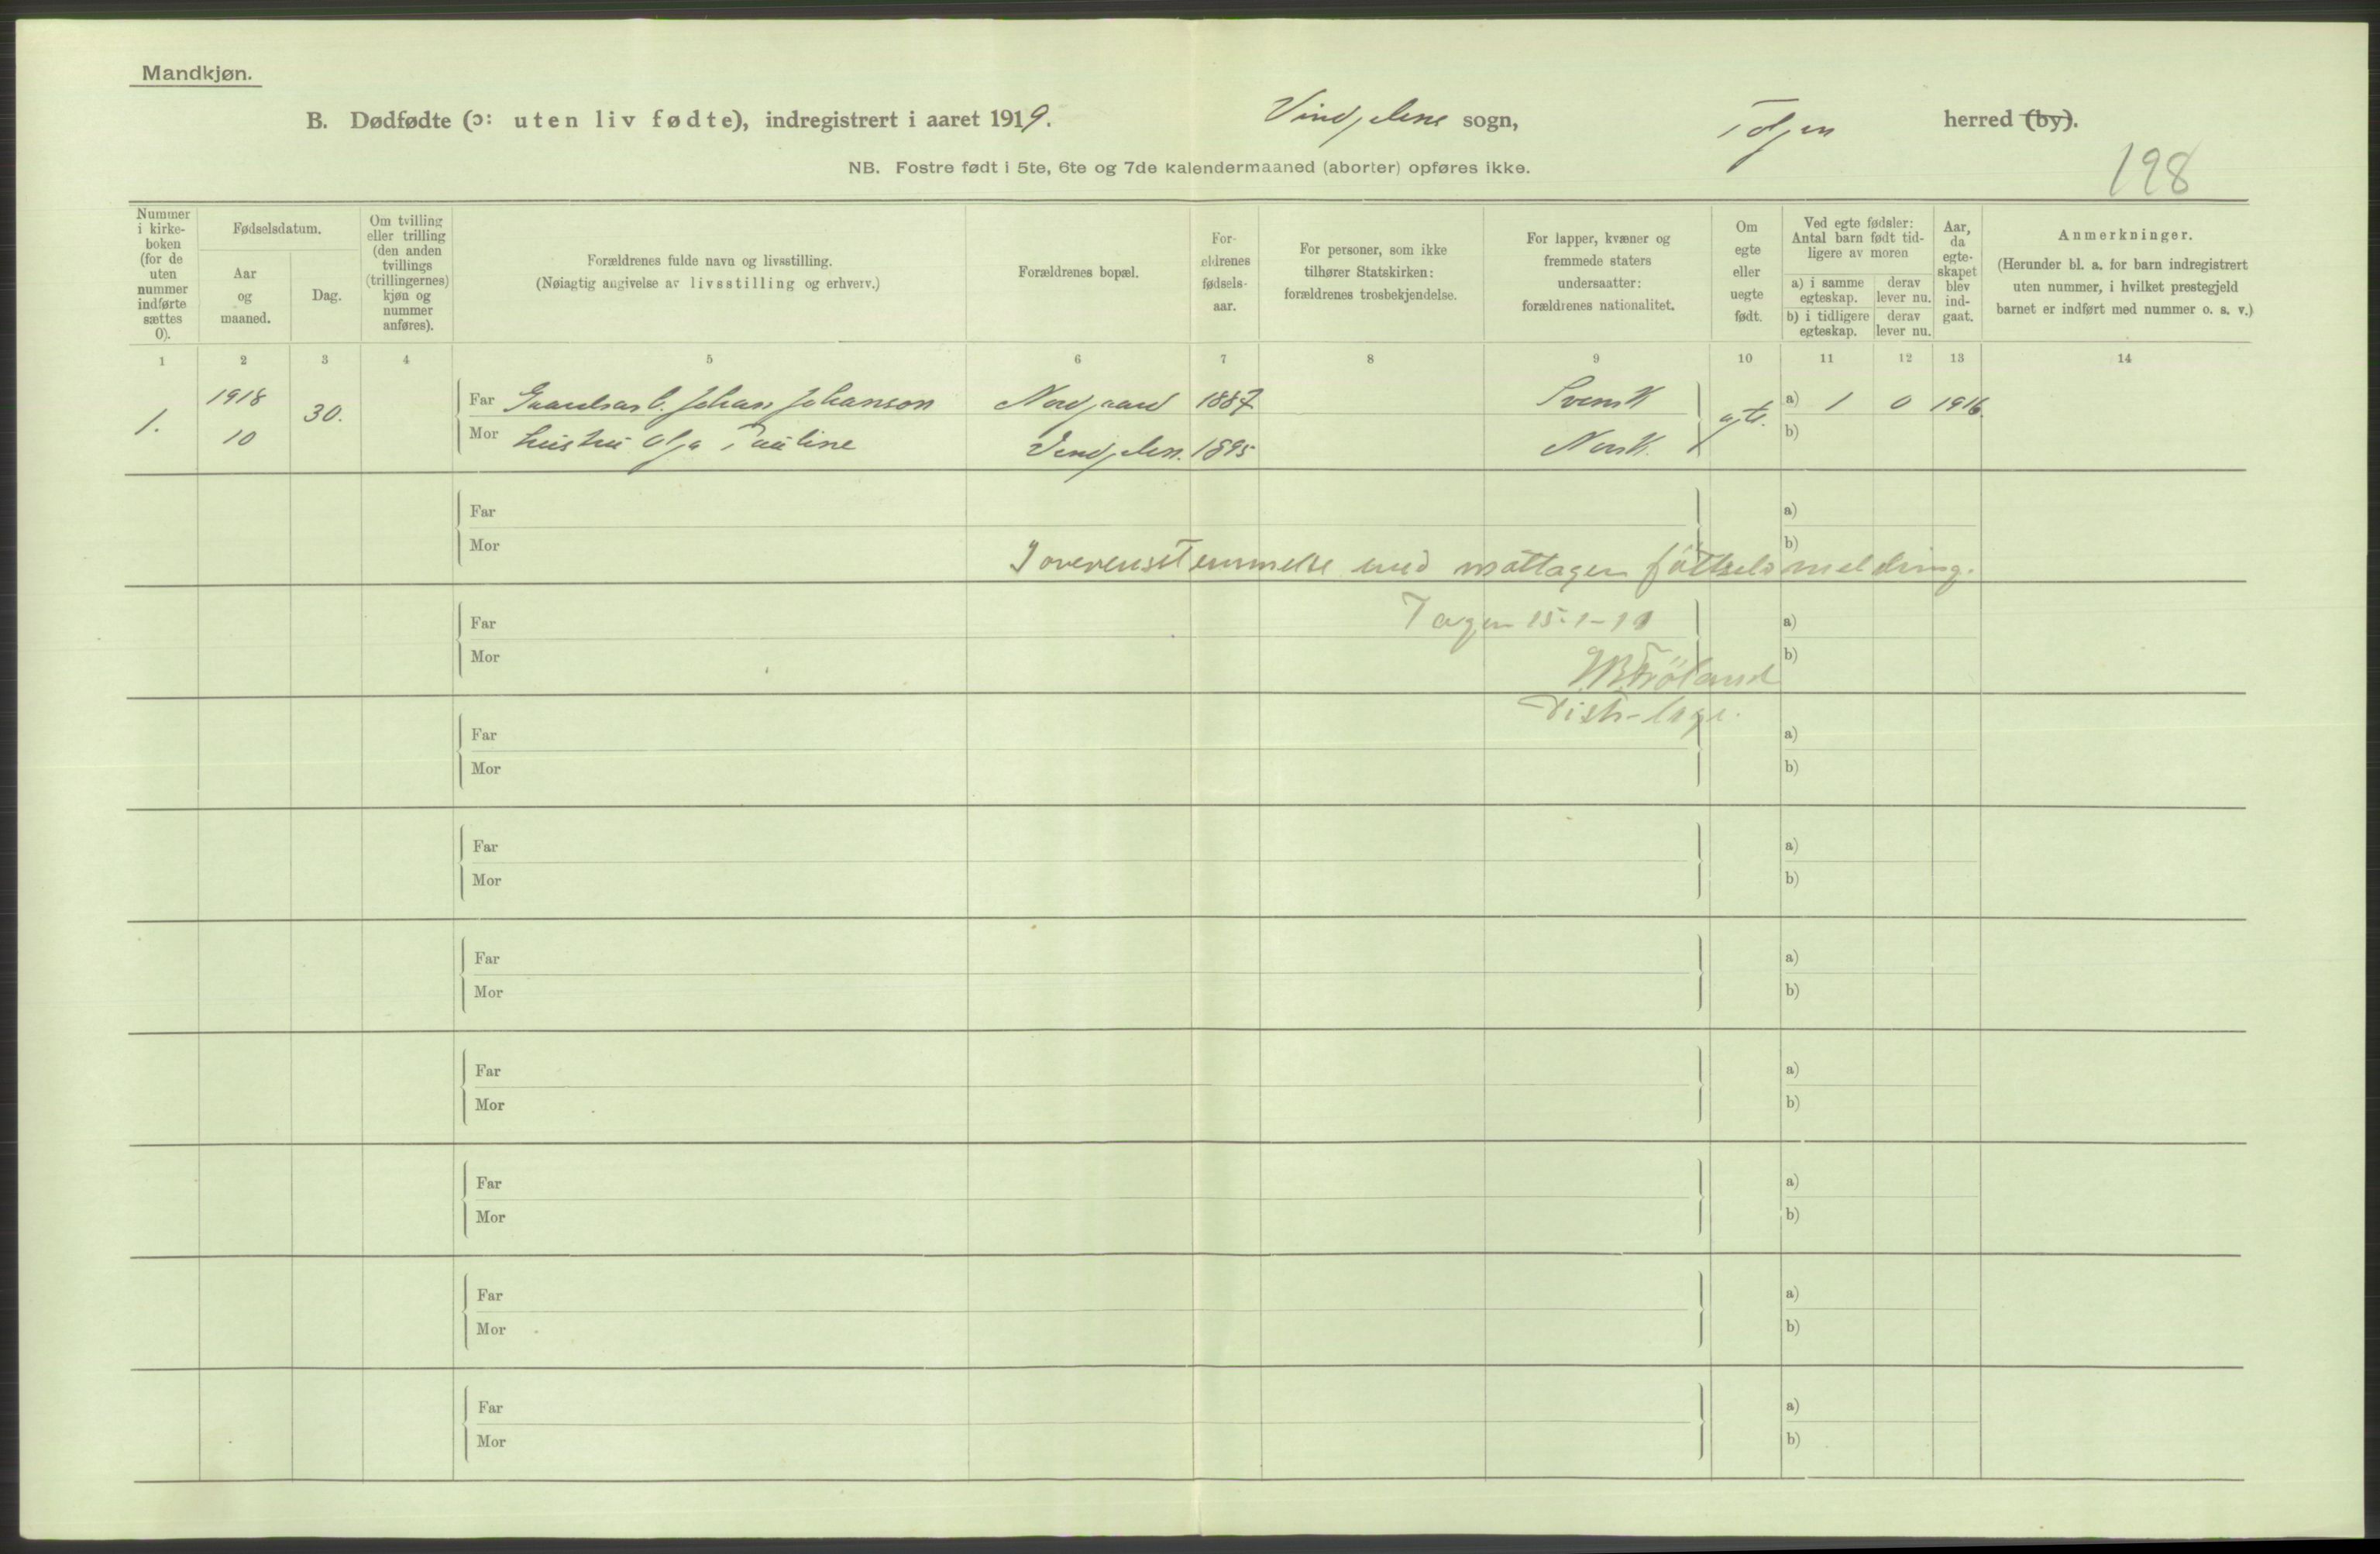 Mandkjøn.
B. Dødfødte (ɔ: uten liv fødte), indregistrert i aaret 1919. Vingelens sogn, Tolgen herred (by).
NB. Fostre født i 5te, 6te og 7de kalendermaaned (aborter) opføres ikke.
198
Nummer i kirke-boken (for de uten nummer indførte sættes 0).
Fødselsdatum.
Aar og maaned.
Dag.
Om tvilling eller trilling (den anden tvillings (trillingernes) kjøn og nummer anføres).
Forældrenes fulde navn og livsstilling.
(Nøiagtig angivelse av livsstilling og erhverv.)
Forældrenes bopæl.
For-ældrenes fødsels-aar.
For personer, som ikke tilhører Statskirken: forældrenes trosbekjendelse.
For lapper, kvæner og fremmede staters undersaatter: forældrenes nationalitet.
Om egte eller uegte født.
Ved egte fødsler: Antal barn født tid-ligere av moren
a) i samme egteskap.
derav lever nu.
b) i tidligere egteskap.
derav lever nu.
Aar, da egte-skapet blev ind-gaat.
Anmerkninger.
(Herunder bl. a. for barn indregistrert uten nummer, i hvilket prestegjeld barnet er indført med nummer o. s. v.)
1 2 3 4 5 6 7 8 9 10 11 12 13 14
1. 1918 10 30.
Far Johan Johanson Nordgaard 1887 Svensk egte. a) 1 0 1916.
Mor hustru Olga Pauline Vingelen. 1895 Norsk. b)
Far a)
Mor b)
I overensstemmelse med mottagen fødselsmelding.
Far a)
Tolgen 15-1-19
Mor b)
Frøland
Distr-læge.
Far a)
Mor b)
Far a)
Mor b)
Far a)
Mor b)
Far a)
Mor b)
Far a)
Mor b)
Far a)
Mor b)
Far a)
Mor b)